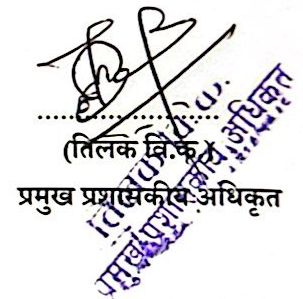 (तिलक वि.क.)
प्रमुख प्रशासकीय अधिकृत
तिलक वि.क.
प्रमुख प्रशासकीय अधिकृत